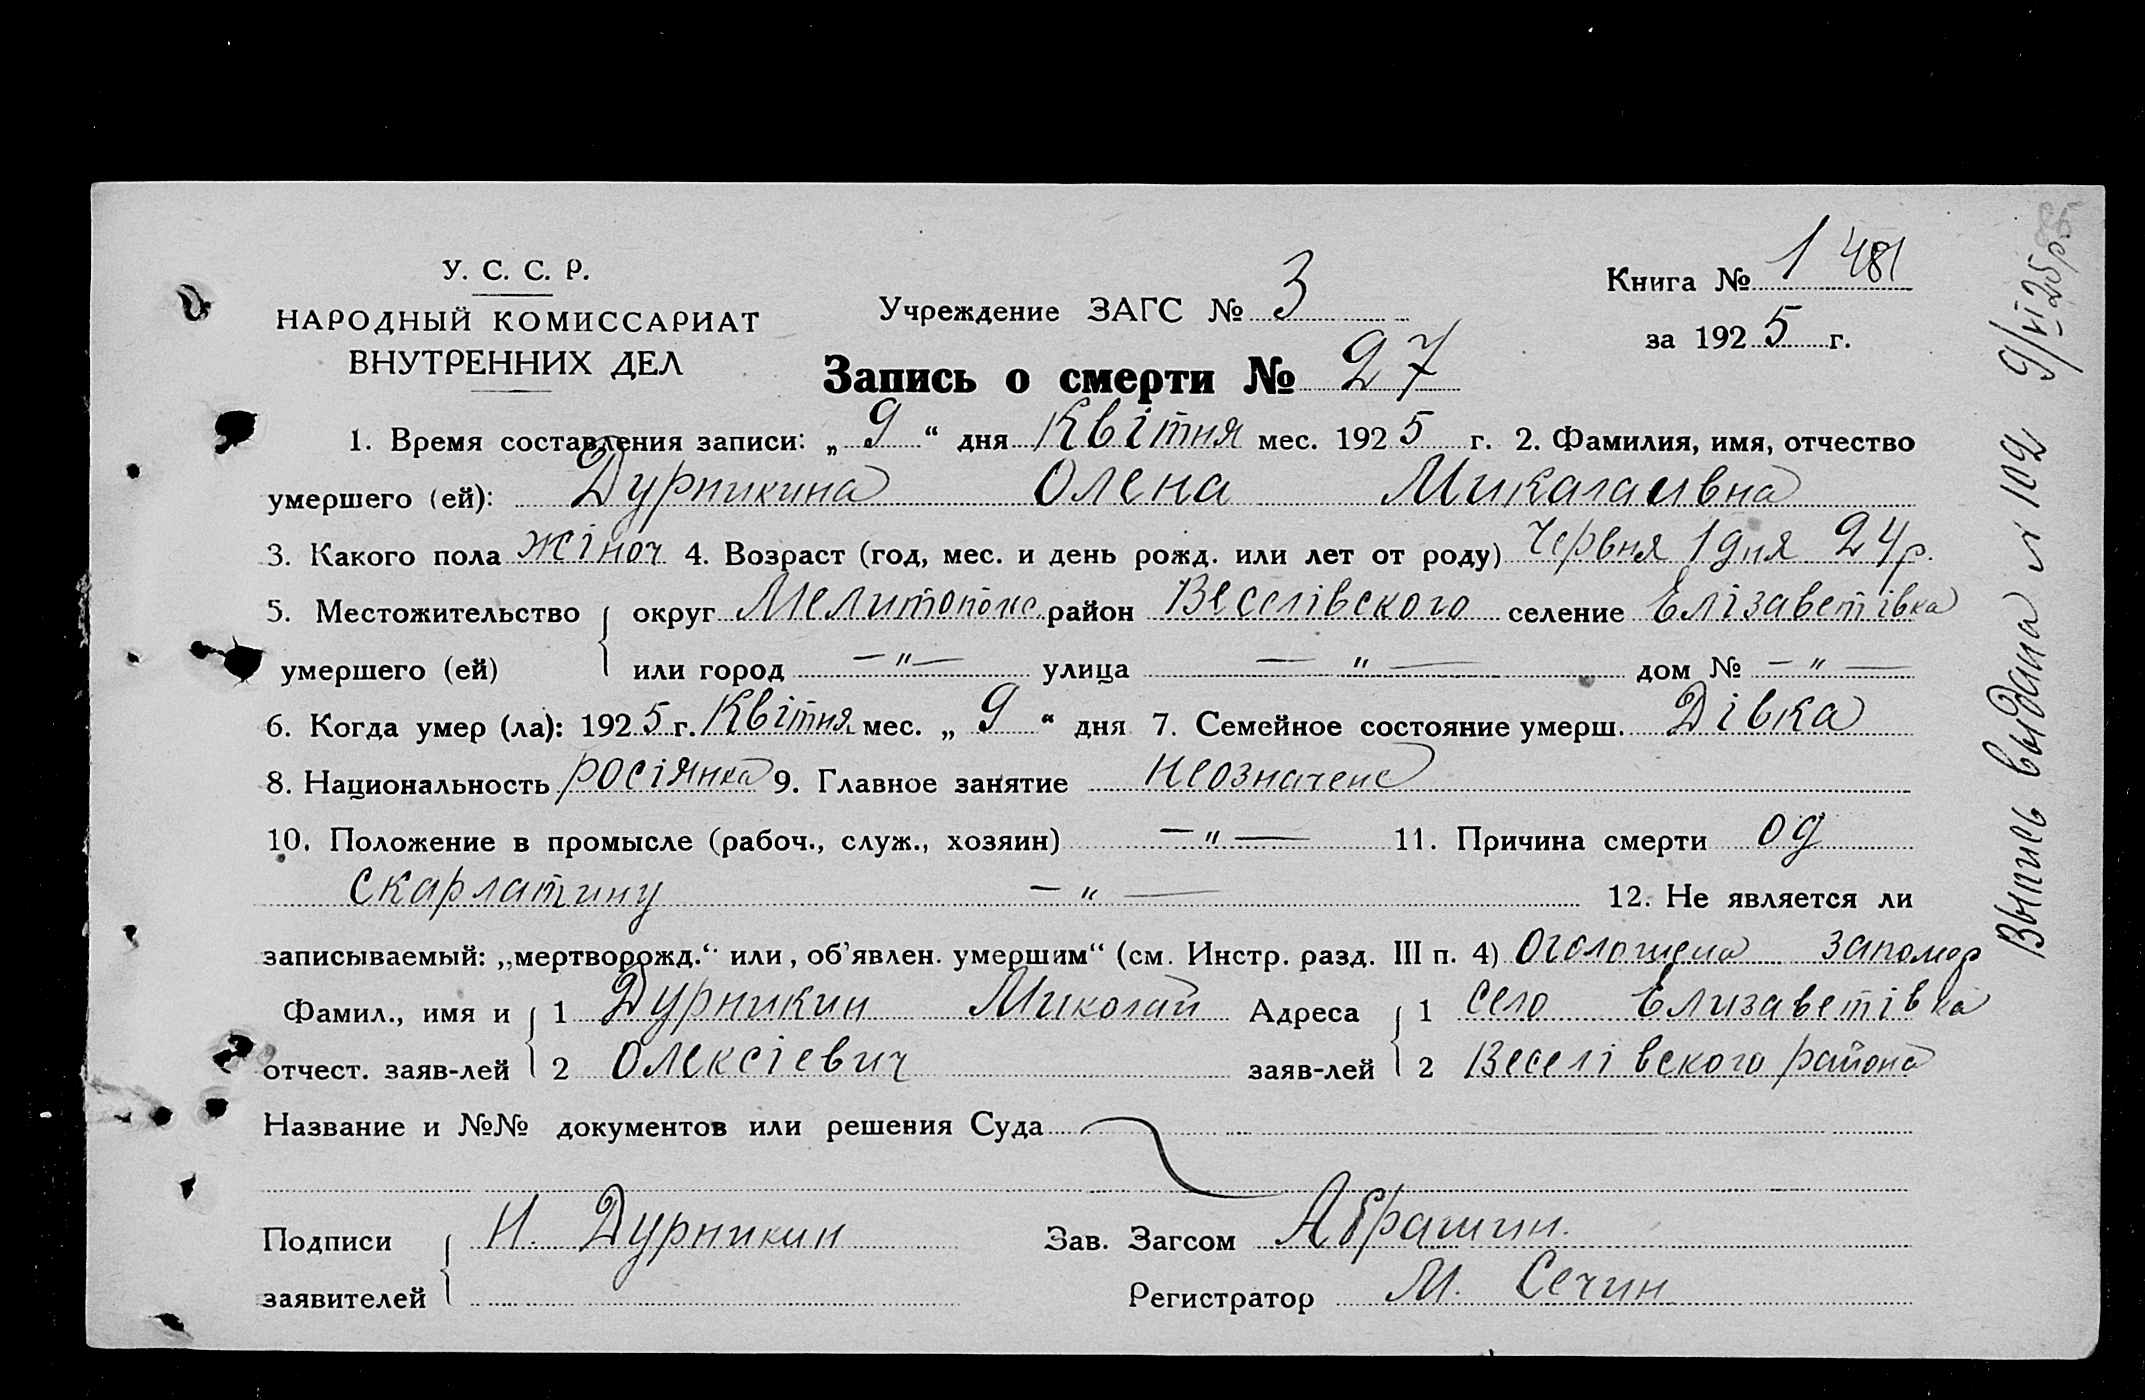 У. С. С. Р.
НАРОДНЫЙ КОМИССАРИАТ
ВНУТРЕННИХ ДЕЛ
Учреждение ЗАГС № 3
Книга № 1 481
за 1925 г.
Запись о смерти № 27
1. Время составления записи: „ 9 “ дня Квітня мес. 1925 г. 2. Фамилия, имя, отчество
умершего (ей): Дурникина Олена Микалаивна
3. Какого пола жіноч 4. Возраст (год, мес. и день рожд. или лет от роду) Червня 1 дня 24 р.
5. Местожительство округ Мелитополс. район Веселівского селение Елізаветівка
умершего (ей) или город — " — улица — " — дом № — " —
6. Когда умер (ла): 1925 г. Квітня мес. „ 9 “ дня 7. Семейное состояние умерш. Дівка
8. Национальность росіянка 9. Главное занятие неозначене
10. Положение в промысле (рабоч., служ., хозяин) — " — 11. Причина смерти од
скарлатину — " — 12. Не является ли
записываемый: „мертворожд.“ или „об’явлен. умершим“ (см. Инстр. разд. III п. 4) Оголошена запомер
Фамил., имя и 1 Дурникин Миколай Адреса 1 село Елизаветівка
отчест. заяв-лей 2 Олексіевич заяв-лей 2 Веселівского района
Название и №№ документов или решения Суда
Подписи Н. Дурникин Зав. Загсом Абрашин.
заявителей Регистратор М. Сечин
Выпись выдана № 102 9/VI 25 р.